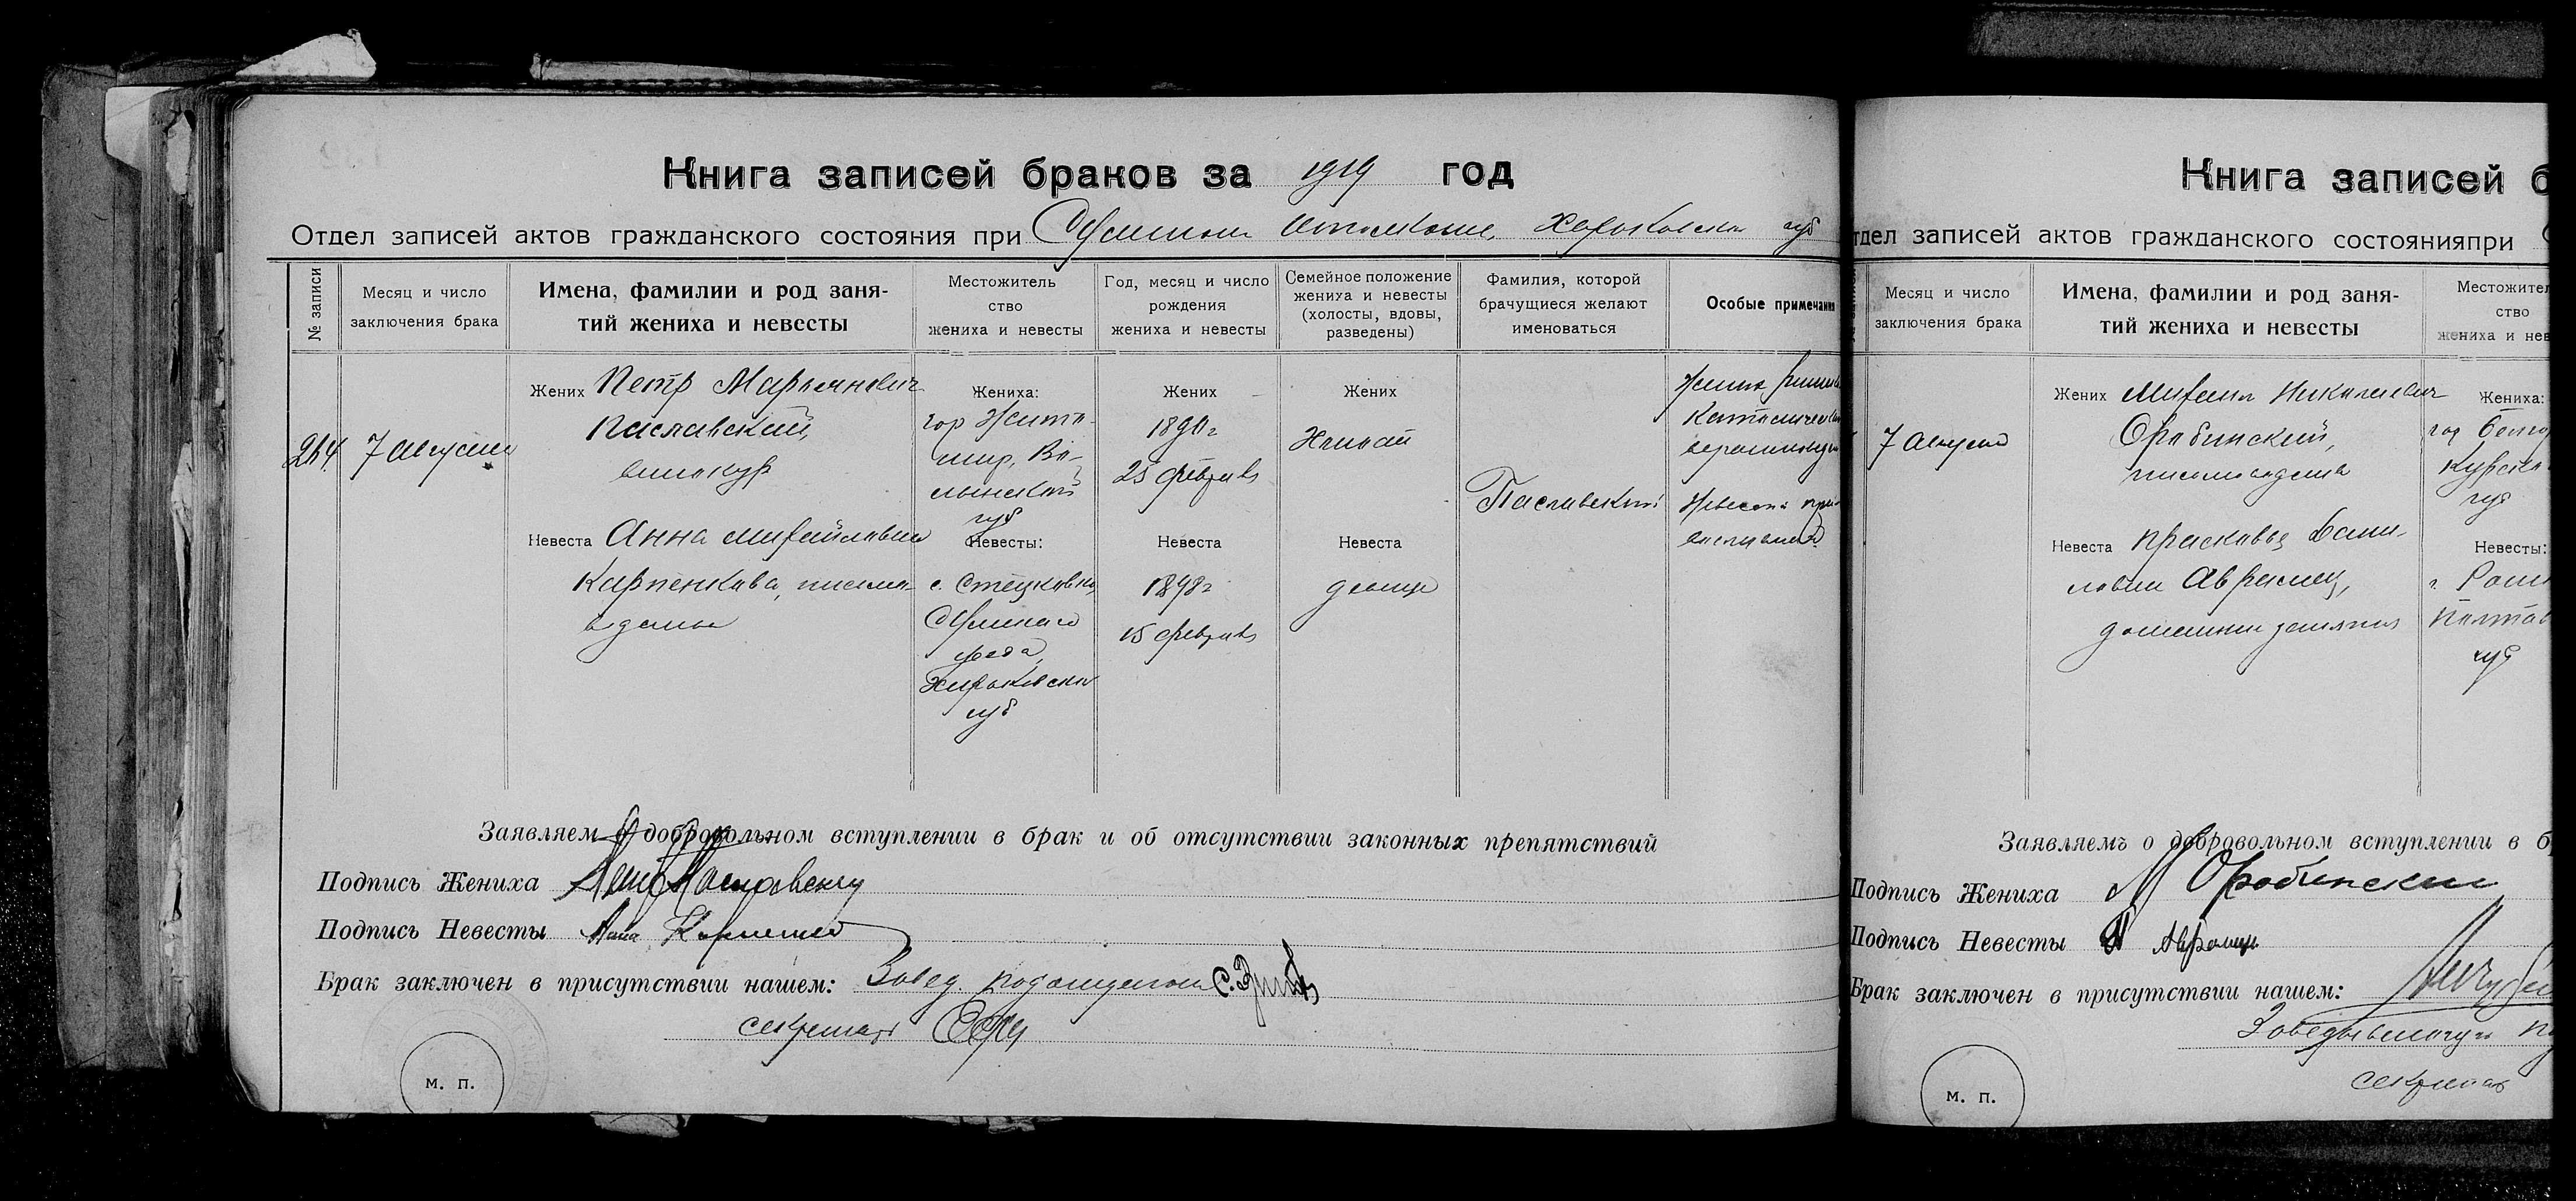 Книга записей браков за 1919 год
Отдел записей актов гражданского состояния при Сумском Исполкоме, Харьковской губ
№ записи
Месяц и число
заключения брака
Имена, фамилии и род заня-
тий жениха и невесты
Местожитель
ство
жениха и невесты
Год, месяц и число
рождения
жениха и невесты
Семейное положение
жениха и невесты
(холосты, вдовы,
разведены)
Фамилия, которой
брачущиеся желают
именоваться
Особые примечания
264
7 Августа
Жених Петр Марьянович
Паславский,
винокур
Невеста Анна Михайловна
Карпенкова, письмо-
водство
Жениха:
гор Жито-
мир, Во-
лынской
губ
Невесты:
с. Стецковка,
Сумского
уезда,
Харьковской
губ
Жених
1890г
25 февраля
Невеста
1898г
15 февраля
Жених
Холост
Невеста
девица
Паславский
Жених римско
католическ
вероисповед
Невеста пра-
вославной
Заявляем о добровольном вступлении в брак и об отсутствии законных препятствий
Подпись Жениха Петр Паславский
Подпись Невесты Анна
Брак заключен в присутствии нашем: Завед. подотделом
секретарь
м. п.
Книга записей б
тдел записей актов гражданского состояния при
Месяц и число
заключения брака
Имена, фамилии и род заня-
тий жениха и невесты
Местожител
ство
жениха и нев
7 Августа
Жених Михаил Николаевич
Оробинский,
письмоводитель
Невеста Прасковья Дани-
ловна Авраменц,
домашния занятия
Жениха:
гор Белго
Курской
губ
Невесты:
г. Ромн
Полтав
губ
Заявляемъ о добровольном вступлении в б
Подпись Жениха М Оробинский
Подпись Невесты П Авраменц
Брак заключен в присутствии нашем:
Заведывающий по
секретарь
м. п.